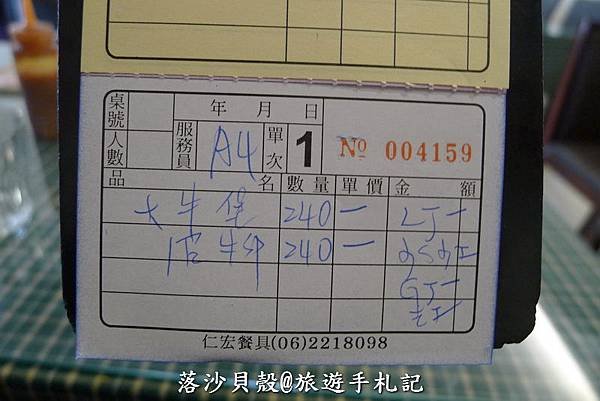 桌號
年 月 日
人數
服務員 A4
單次 1
№ 004159
品 名 數量 單價 金 額
大牛堡 240 一 LJ一
240 一
GJ一
仁宏餐具(06)2218098
落沙貝殼@旅遊手札記